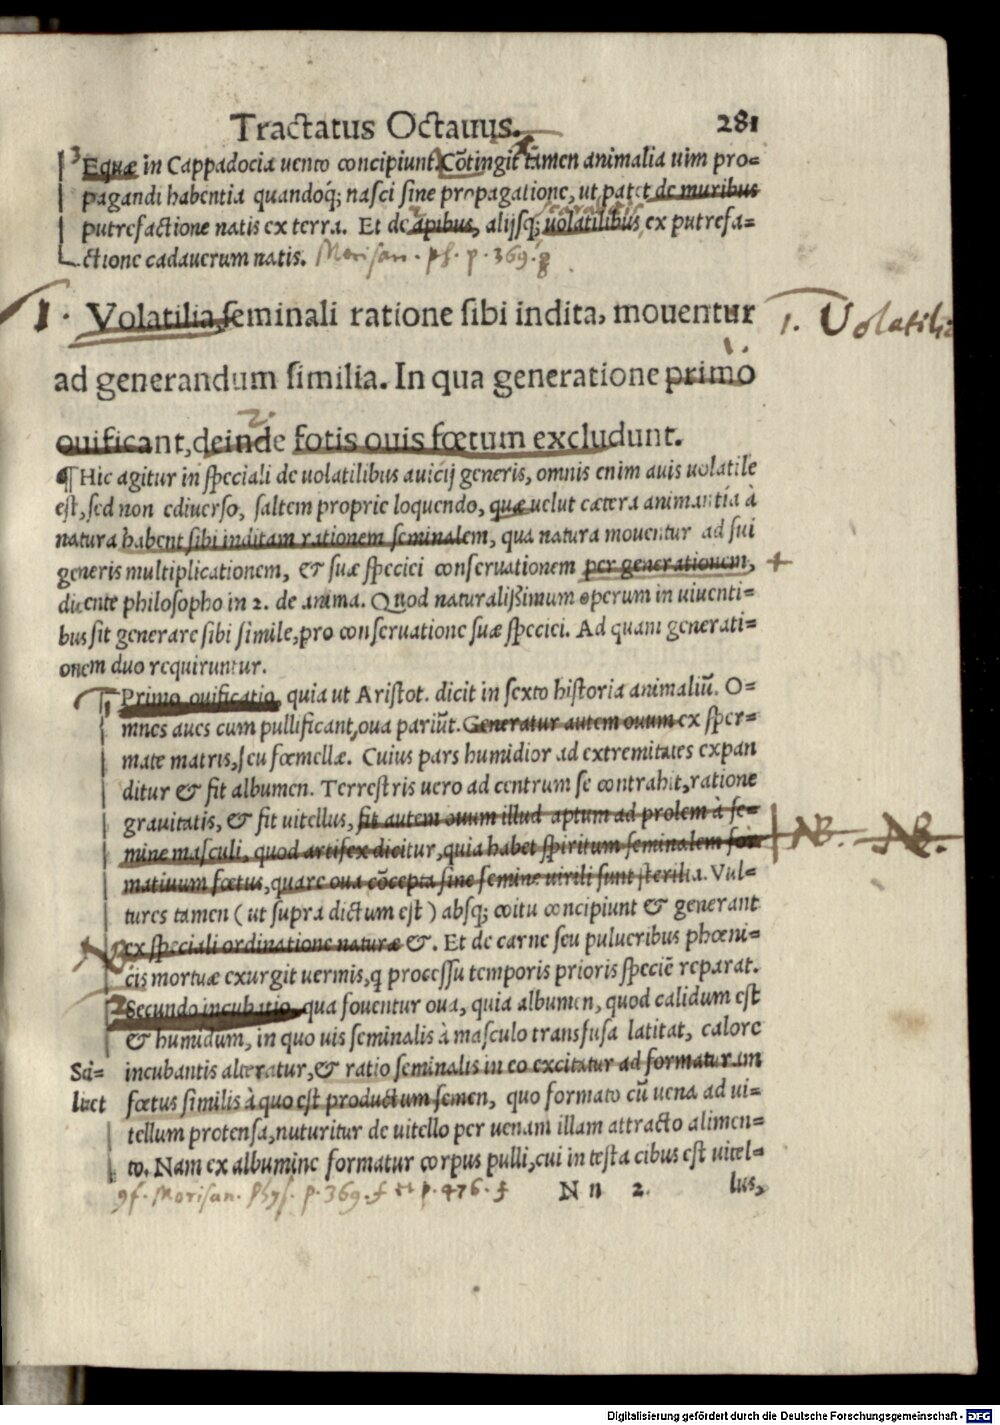 Tractatus Octauus. 281
3 Equæ in Cappadocia uento concipiunt. Cõtingit tamen animalia uim pro=
pagandi habentia quandoq́; nasci sine propagatione, ut patet de muribus
putrefactione natis ex terra. Et de apibus, alijsq́; uolatilibus, ex putrefa=
ctione cadauerum natis. Morisan. ph. p. 369.
1. Volatilia, seminali ratione sibi indita, mouentur 1. Volatilia
ad generandum similia. In qua generatione primò
2.
ouificant, deinde fotis ouis fœtum excludunt.
¶ Hic agitur in speciali de uolatilibus auicij generis, omnis enim auis uolatile
est, sed non ediuerso, saltem proprie loquendo, quæ uelut cætera animantia à
natura habent sibi inditam rationem seminalem, qua natura mouentur ad sui
generis multiplicationem, & suæ speciei conseruationem per generationem, +
dicente philosopho in 2. de anima. Quod naturalißimum operum in uiuenti=
bus sit generare sibi simile, pro conseruatione suæ speciei. Ad quam generati=
onem duo requiruntur.
1 Primo ouificatio, quia ut Aristot. dicit in sexto historia animaliũ. O=
mnes aues cum pullificant, oua pariũt. Generatur autem ouum ex sper=
mate matris, seu fœmellæ. Cuius pars humidior ad extremitates expan
ditur & fit albumen. Terrestris uero ad centrum se contrahit, ratione
grauitatis, & fit uitellus, fit autem ouum illud aptum ad prolem à se=
mine masculi, quod artifex dicitur, quia habet spiritum seminalem for NB. NB.
matiuum fœtus, quare oua cõcepta sine semine uirili sunt sterilia. Vul=
tures tamen (ut supra dictum est) absq; coitu concipiunt & generant
NB ex speciali ordinatione naturæ &. Et de carne seu pulueribus phœni=
cis mortuæ exurgit uermis, q processu temporis prioris speciẽ reparat.
2 Secundo incubatio, qua fouentur oua, quia albumen, quod calidum est
& humidum, in quo uis seminalis à masculo transfusa latitat, calore
Sci= incubantis alteratur, & ratio seminalis in eo excitatur ad formaturam
licet fœtus similis à quo est productum semen, quo formato cũ uena ad ui=
tellum protensa, nuturitur de uitello per uenam illam attracto alimen=
to. Nam ex albumine formatur corpus pulli, cui in testa cibus est uitel=
Morisan. Phys. p. 369. f et p. 476. f N n 2. lus,
Digitalisierung gefördert durch die Deutsche Forschungsgemeinschaft - DFG